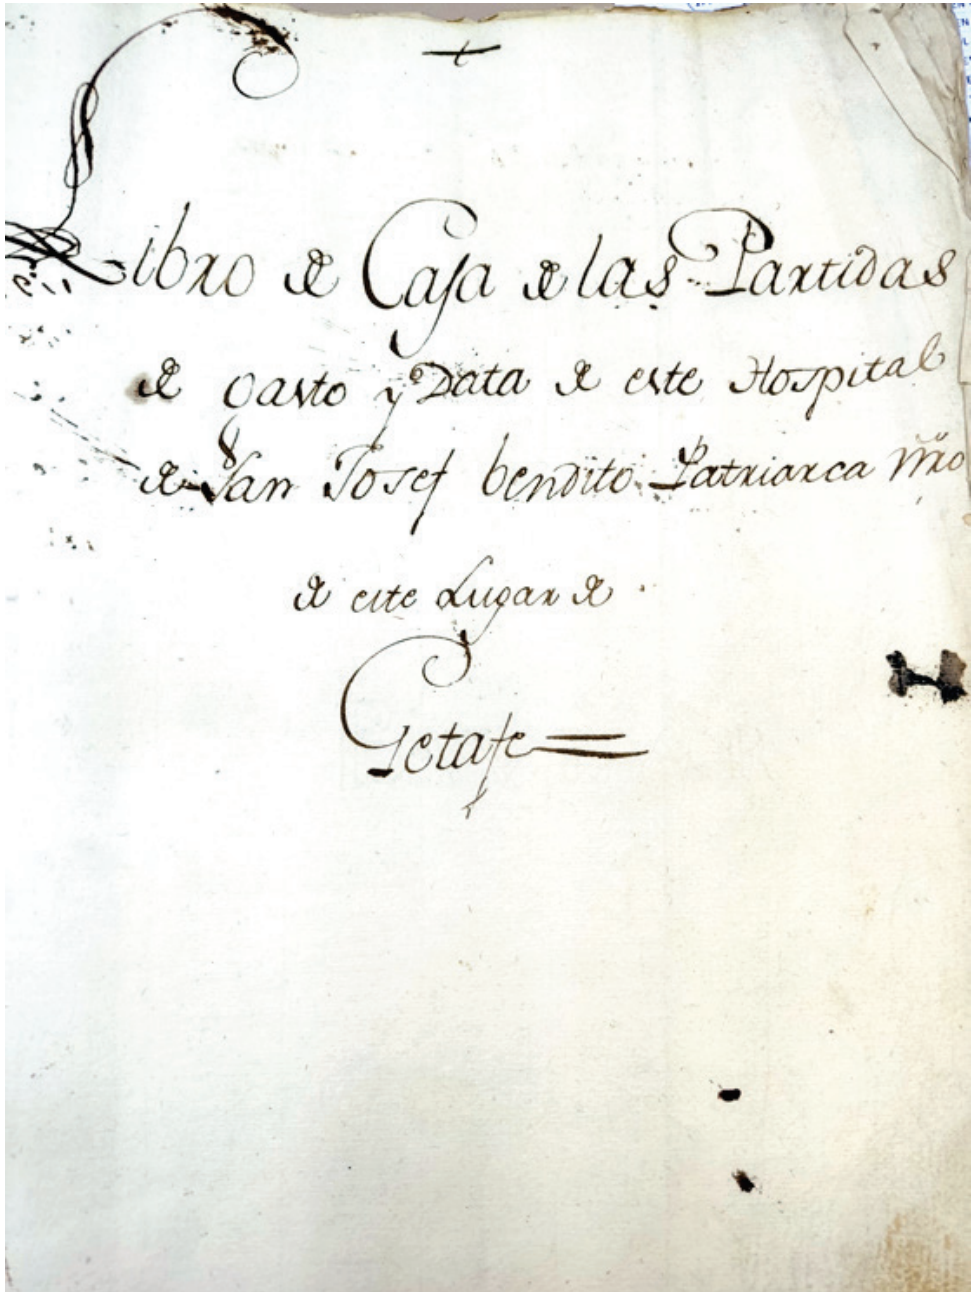 +
Libro de Caja de las Partidas
de gasto y Data de este Hospital
de San Josef bendito Patriarca nrõ
de este Lugar de
Getafe